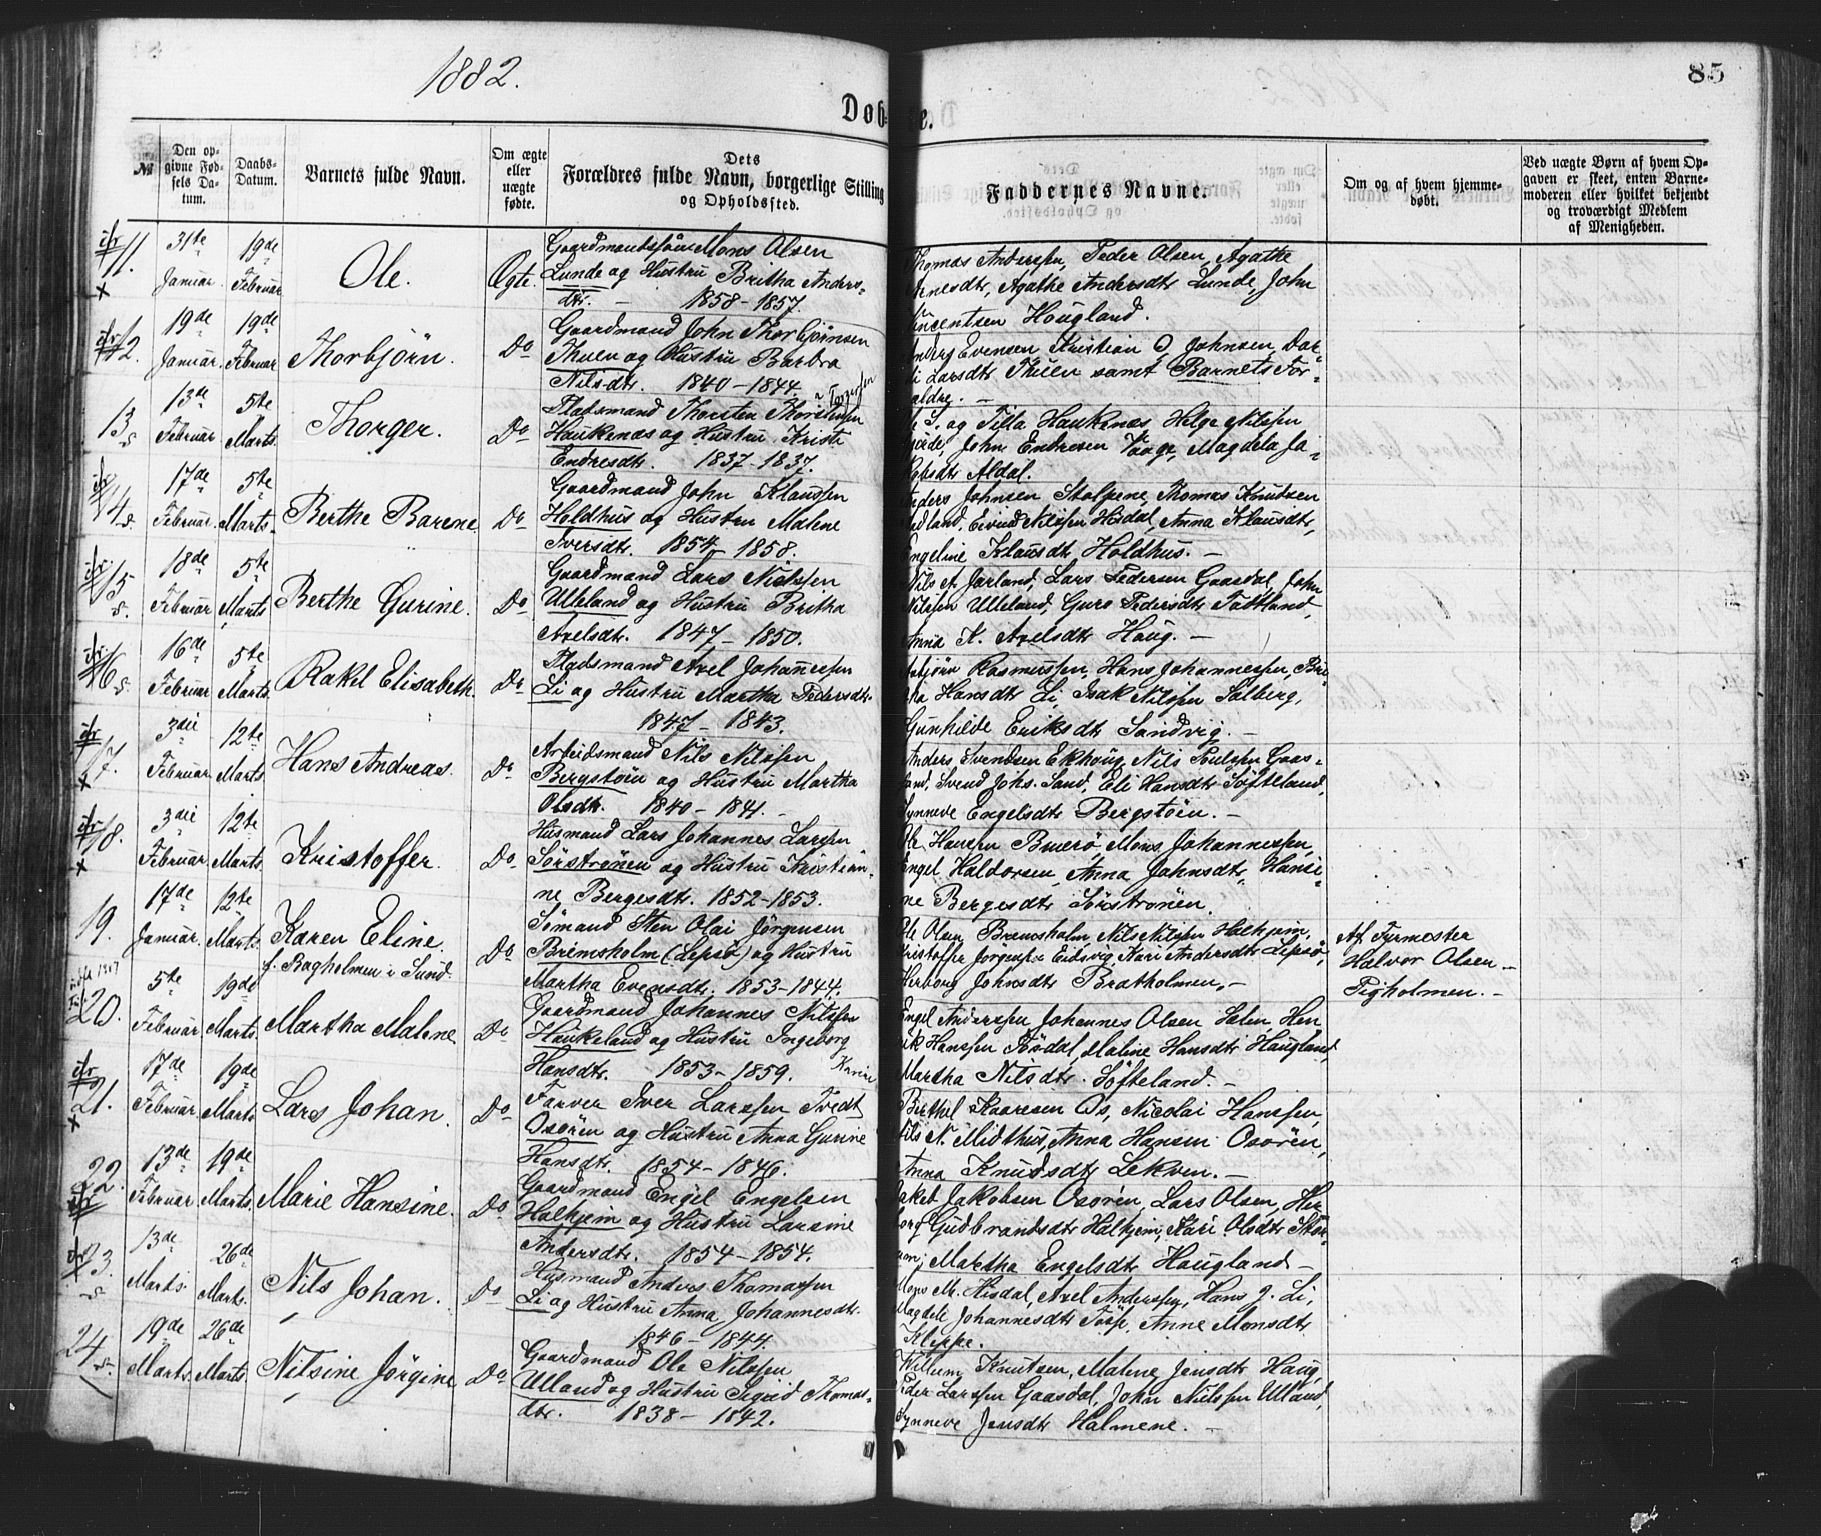 1882.
85
Døbte.
№
Den opgivne Fødsels Datum.
Daabs-Datum.
Barnets fulde Navn.
Om ægte eller uægte fødte.
Dets Forældres fulde Navn, borgerlige Stilling og Opholdssted.
Faddernes Navne.
Om og af hvem hjemmedøbt.
Ved uægte Børn af hvem Opgaven er skeet, enten Barnemoderen eller hvilket bekjendt og troværdigt Medlem af Menigheden.
11. 31te Januar. 19de Februar Ole. Ægte.
Gaardmandssøn Mons Olsen
Lunde og Hustru Britha Anders-
dtr. – 1858 – 1857.
Thomas Anderssen, Peder Olsen, Agathe
Arnesdtr, Agathe Andersdtr Lunde, John
Vincentsen Hougland.
12. 19de Januar. 19de Februar Thorbjörn. Do
Gaardmand John Thorbjörnsen
Thuen og Hustru Barbra
Nilsdtr. 1840 – 1844.
Evensen Kristian O. Johnsen Dor-
Larsdtr Thuen samt Barnets For-
ældre. –
13. 13de Februar. 5te Marts. Thorger. Do
Pladsmand Thorsten Thorstensen
Haukenæs og Hustru Kristi
Endresdtr. 1837 – 1837.
og Tilla Haukenæs, Helge Nilssen
John Endresen Vaage, Magdela Ja-
kobsdtr Aldal.
14. 17de Februar. 5te Marts. Berthe Barene Do
Gaardmand John Klaussen
Holdhus og Hustru Malene
Iversdtr. 1854 – 1858.
Anders Johnsen Stolpene, Thomas Knutsen
Eivind Nilssen Hisdal, Anna Klausdtr,
Engeline Klausdtr Holdhus. –
15. 18de Februar 5te Marts Berthe Gurine. Do
Gaardmand Lars Nielssen
Ulleland og Hustru Britha
Axelsdtr. 1847 – 1850.
Nils A. Jarland, Lars Pedersen Gaasdal, John
Nilssen Ulleland, Guro Pedersdtr Tøtland,
Anna K. Axelsdtr Haug. –
16. 16de Februar 5te Marts. Rakel Elisabeth. Do
Pladsmand Axel Johannessen
Li og Hustru Martha Pedersdtr.
1847 – 1843.
Rasmussen, Hans Johannessen, Bri-
tha Hansdtr Li, Isak Nilssen Solberg,
Gunhilde Eriksdtr Sandvig. –
17. 3die Februar 12te Marts. Hans Andreas. Do
Arbeidsmand Nils Nilssen
Bergstöen og Hustru Martha
Olsdtr. 1840 – 1841. –
Anders Svendsen Ekhoug, Nils Poulsen Gaas-
land, Svend Johs. Sand, Eli Hansdtr Söfteland,
Synneve Engelsdtr Bergstöen. –
18. 3die Februar. 12te Marts. Kristoffer. Do
Husmand Lars Johannes Larssen
Sörströnen og Hustru Kristian-
ne Bergesdtr. 1852 – 1853.
Ole Hanssen Bueröe, Mons Johannessen,
Engel Haldorsen, Anna Johnsdtr, Hansi-
ne Bergesdtr Sörströnen.
19. 17de Januar. 12te Marts. Karen Eline.
f. Bagholmen i Sund. Do
Sömand Sten Olai Jörgensen
Bremsholm (Lepsö) og Hustru
Martha Evensdtr. 1853 – 1844.
Ole Olsen Bremsholm, Nils Nilssen Halhjem,
Kristoffer Jörgensen Eidsvig, Kari Andersdtr Lepsö,
Herborg Johnsdtr Bratholmen. –
Af Fyrmester
Halvor Olsen –
20. 5te Februar 19de Marts. Martha Malene Do
Gaardmand Johannes Nilssen
Haukeland og Hustru Ingeborg
Hansdtr. 1853 – 1859.
Engel Anderssen, Johannes Olsen Salen, Hen-
rik Hanssen Rödal, Maline Hansdtr Haugland,
Martha Nilsdtr. Söfteland. –
21. 17de Februar. 19de Marts. Lars Johan. Do
Farver Iver Larssen Tvedt
Osören og Hustru Anna Gurine
Hansdtr. 1854 – 1846.
Berthel Kaaresen Os, Nicolai Hanssen,
Nils N. Midthus, Anna Hansen Osören,
Anna Knudsdtr Lekven. –
22. 13de Februar 19de Marts. Marie Hansine. Do
Gaardmand Engel Engelsen
Halhjem og Hustru Larsine
Andersdtr. 1854 – 1854.
Jakob Jakobsen Osören, Lars Olsen, Her-
borg Gudbrandsdtr Halhjem, Kari Olsdtr
Martha Engelsdtr Haugland –
23. 13de Marts. 26de Marts. Nils Johan. Do
Husmand Anders Thomassen
Li og Hustru Anna Johannesdtr.
1846 – 1844.
Mons M. Hisdal, Axel Anderssen, Hans J. Li,
Magdeli Johannesdtr Anne Monsdtr
Kleppe.
24. 19de Marts. 26de Marts. Nilsine Jörgine Do
Gaardmand Ole Nilssen
Ulland og Hustru Sigrid Thomas-
dtr. 1838 – 1842.
Willum Knutsen, Malene Jensdtr Haug,
Peder Larssen Gaasdal, John Nilssen Ulland,
Synneve Jensdtr Halmene. –